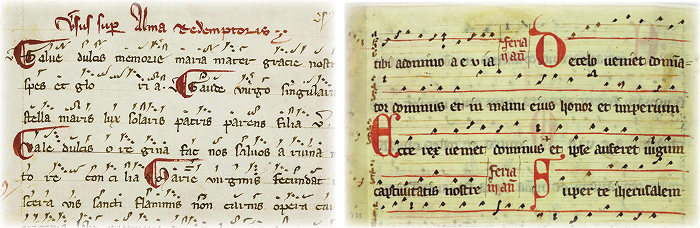 Vsus sup Alma Redemptoris
Salue dulcis memorie maria mater gracie nostr
spes et glo ri a. Gaude virgo singulari
stella maris lux solaris patris parens filia
Vale dulcis o re gina fac nos saluos a ruina
to re con ci lia Marie virginis fecundat
scera vis sancti flaminis non carnis opera
tibi domino a e v ia feria De celo veniet domina
tor dominus et in manu eius honor et imperium
Ecce rex veniet dominus et ipse auferet iugum
captiuitatis nostre feria Super te iherusalem